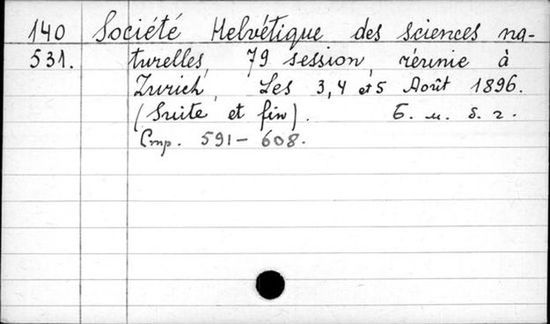 140 Société Helvétique des sciences na-
531. turelles, 79 session, réunie à
Zurich, Les 3, 4 et 5 Août 1896.
(Suite et fin). Б. и. д. г.
Стр. 591 – 608.